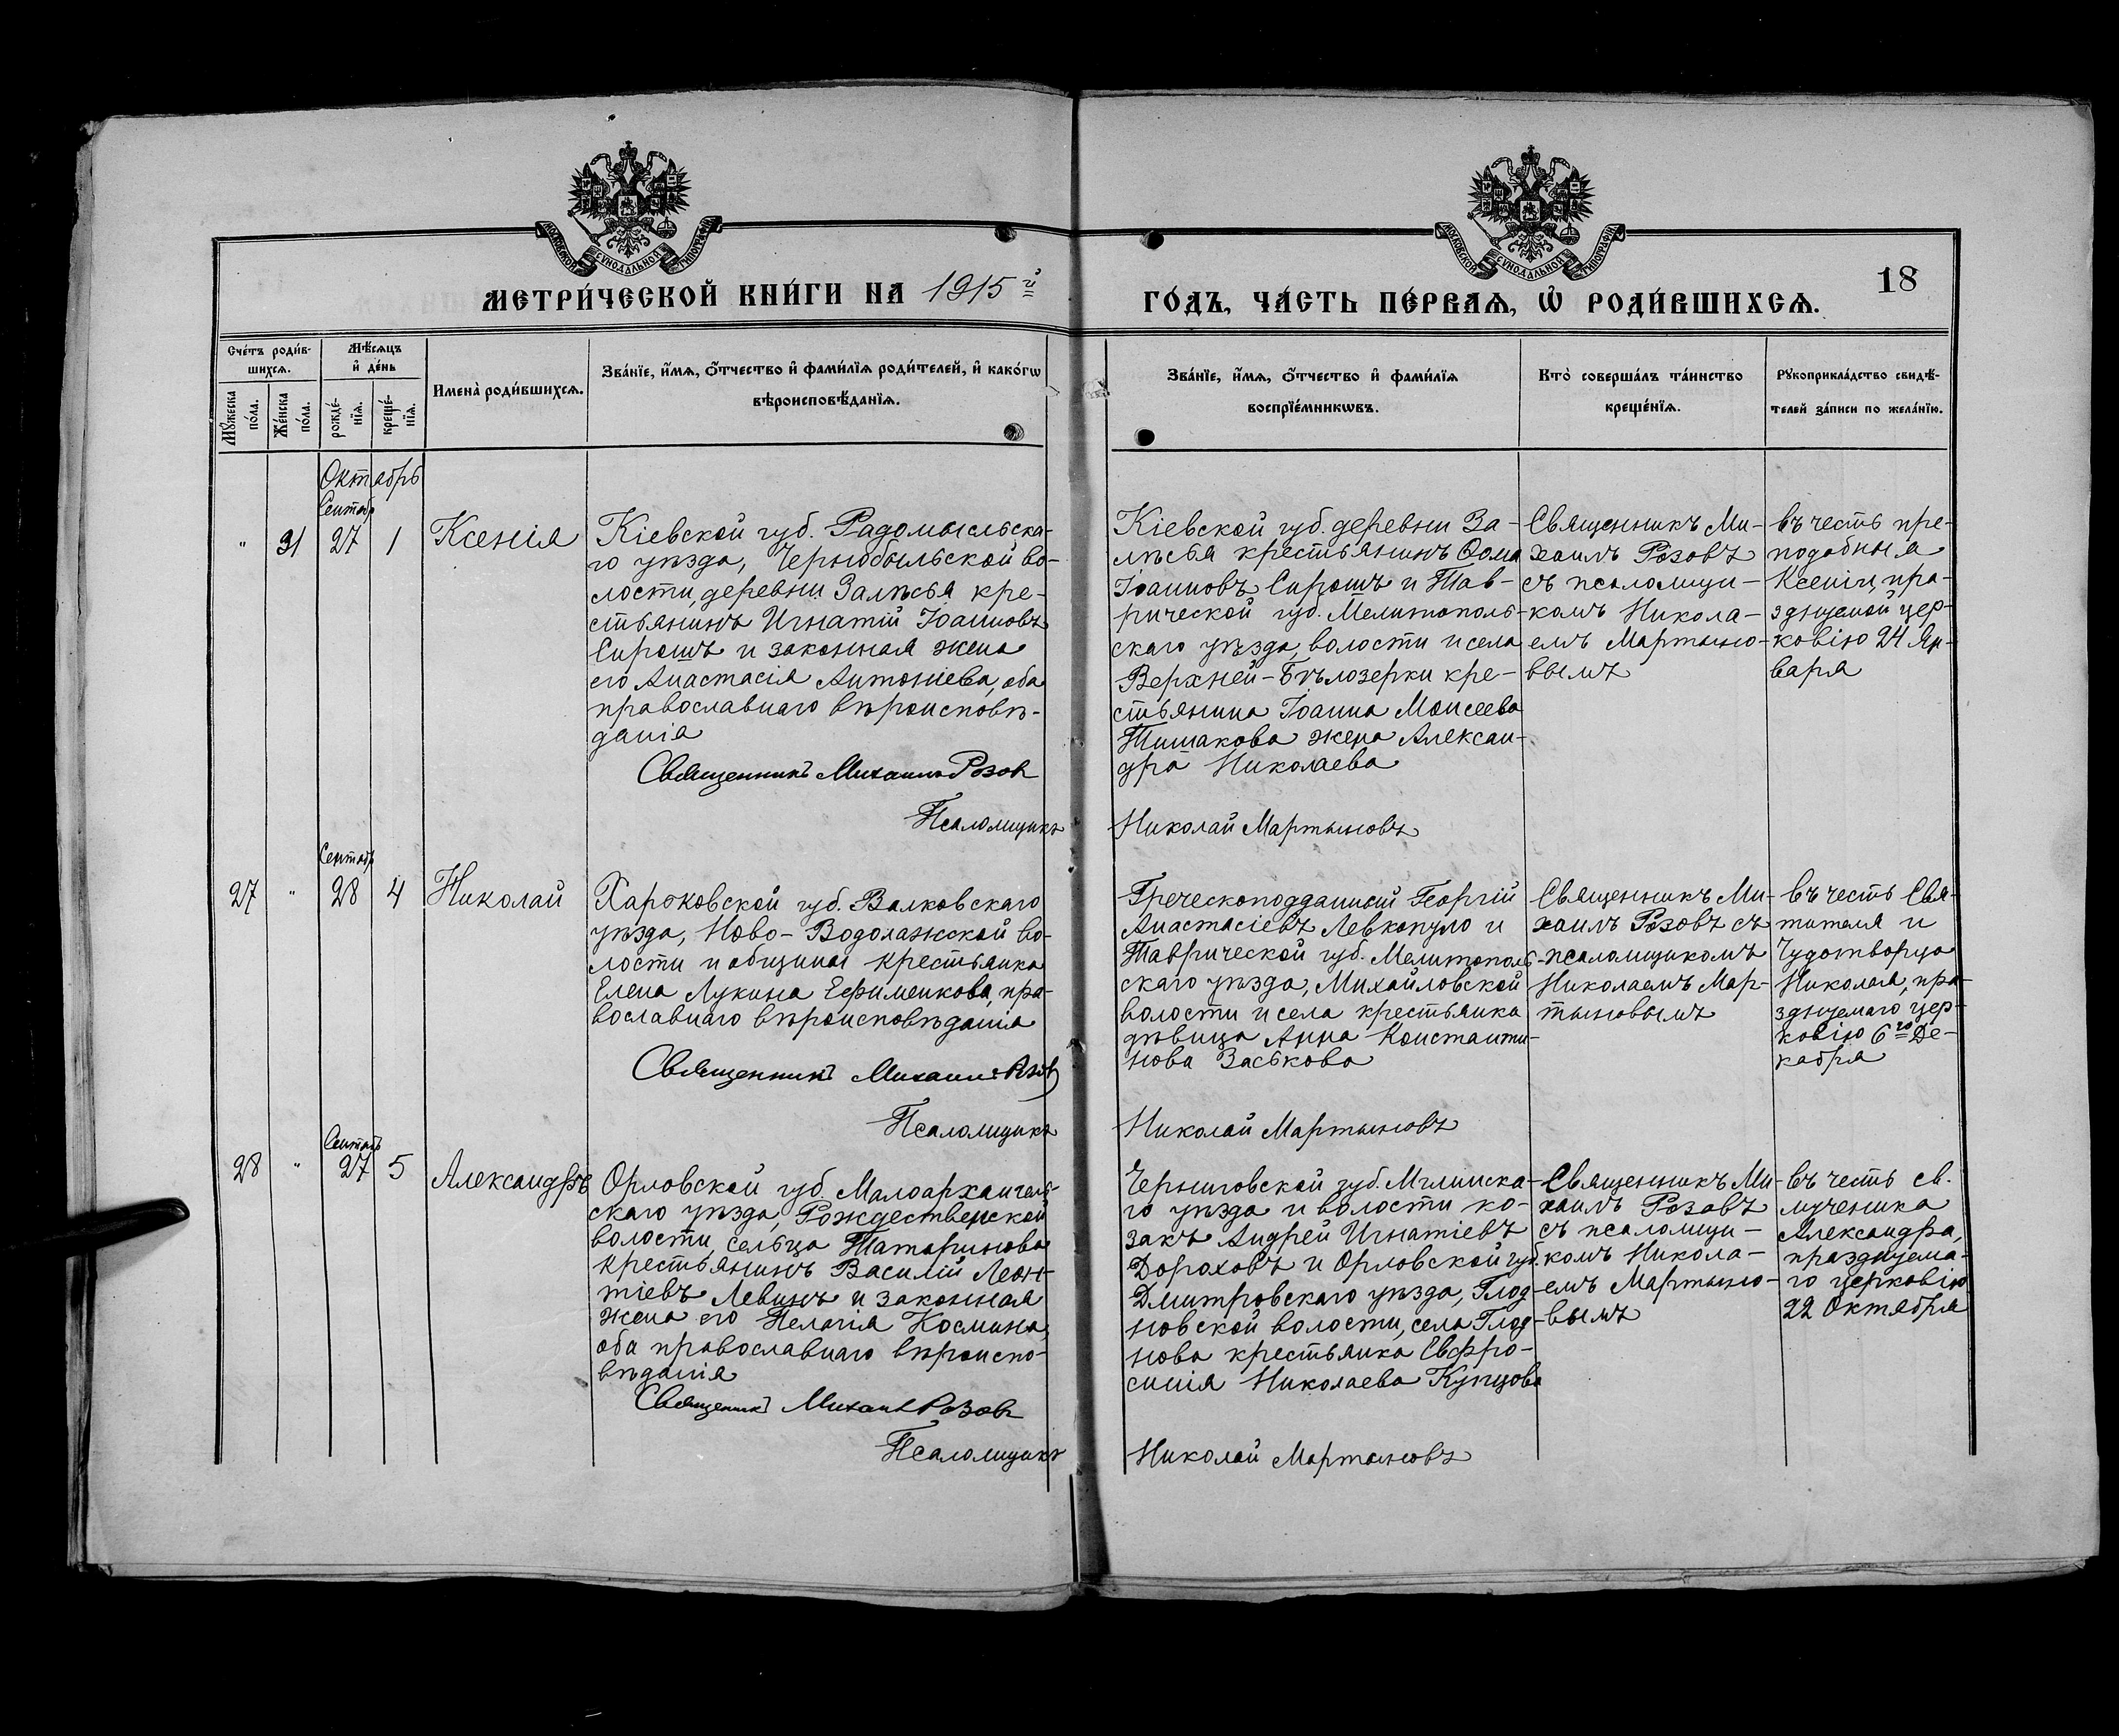 МОСКОВСКОЙ СѴНОДАЛЬНОЙ ТИПОГРАФІИ
МОСКОВСКОЙ СѴНОДАЛЬНОЙ ТИПОГРАФІИ
МЕТРИ́ЧЕСКОЙ КНИ́ГИ НА 1915й
ГО́ДЪ, ЧА́СТЬ ПЕ́РВАѦ, Ѽ РОДИ́ВШИХСѦ.
18
Сче́тъ роди́в-
шихсѧ.
Мѣ́сѧцъ
и҆ де́нь
Мꙋ́жеска
по́ла.
Же́нска
по́ла.
рожде́-
нїѧ.
креще́-
нїѧ.
Имена̀ роди́вшихсѧ.
Зва́нїе, и҆́мѧ, ѻ҆́тчество и҆ фами́лїѧ роди́телей, и҆ како́гѡ
вѣроисповѣ́данїѧ.
Зва́нїе, и҆́мѧ, ѻ҆́тчество и҆ фами́лїѧ
воспрїе́мникѡвъ.
Кто̀ соверша́лъ та́инство
креще́нїѧ.
Рꙋкоприкла́дство свидѣ́-
телей за́писи по жела́нїю.
Октябрь
Сентяб
" 31 27 1 Ксенія
Кіевской губ. Радомысльска-
го уѣзда, Чернобыльской во-
лости, деревни Залѣсья кре-
стьянинъ Игнатій Іоанновъ
Сирошъ и законная жена
его Анастасія Антоніева, оба
православнаго вѣроисповѣ-
данія
Священникъ Михаилъ Розовъ
Псаломщикъ
Кіевской губ. деревни За-
лѣсья крестьянинъ Ѳома
Іоанновъ Сирошъ и Тав-
рической губ. Мелитополь-
скаго уѣзда, волости и села
Верхней-Бѣлозерки кре-
стьянина Іоанна Моисеева
Тишакова жена Алексан-
дра Николаева
Николай Мартыновъ
Священникъ Ми-
хаилъ Розовъ
съ псаломщи-
комъ Никола-
емъ Мартыно-
вымъ
въ честь пре-
подобныя
Ксеніи, пра-
зднуемой цер-
ковію 24 Ян-
варя
Сентяб
27 " 28 4 Николай
Харьковской губ. Валковскаго
уѣзда, Ново-Водолажской во-
лости и общины крестьянка
Елена Лукина Ефименкова, пра-
вославнаго вѣроисповѣданія
Священникъ Михаилъ Розовъ
Псаломщикъ
Греческоподданный Георгій
Анастасіевъ Левкопуло и
Таврической губ. Мелитополь-
скаго уѣзда, Михайловской
волости и села крестьянка
дѣвица Анна Константи-
нова Заськова
Николай Мартыновъ
Священникъ Ми-
хаилъ Розовъ съ
псаломщикомъ
Николаемъ Мар-
тыновымъ
въ честь Свя-
тителя и
Чудотворца
Николая, пра-
зднуемаго цер-
ковію 6го Де-
кабря
Сентяб
28 " 27 5 Александръ
Орловской губ. Малоархангель-
скаго уѣзда, Рождественской
волости, сельца Татаринова
крестьянинъ Василій Леон-
тіевъ Левинъ и законная
жена его Пелагія Космина,
оба православнаго вѣроиспо-
вѣданія
Священникъ Михаилъ Розовъ
Псаломщикъ
Черниговской губ. Мглинска-
го уѣзда и волости ко-
закъ Андрей Игнатіевъ
Дороховъ и Орловской губ.
Дмитровскаго уѣзда, Глод-
невской волости, села Глод-
нева крестьянка Евфро-
синія Николаева Купцова
Николай Мартыновъ
Священникъ Ми-
хаилъ Розовъ
съ псаломщи-
комъ Никола-
емъ Мартыно-
вымъ
въ честь св.
мученика
Александра,
празднуема-
го церковію
22 Октября